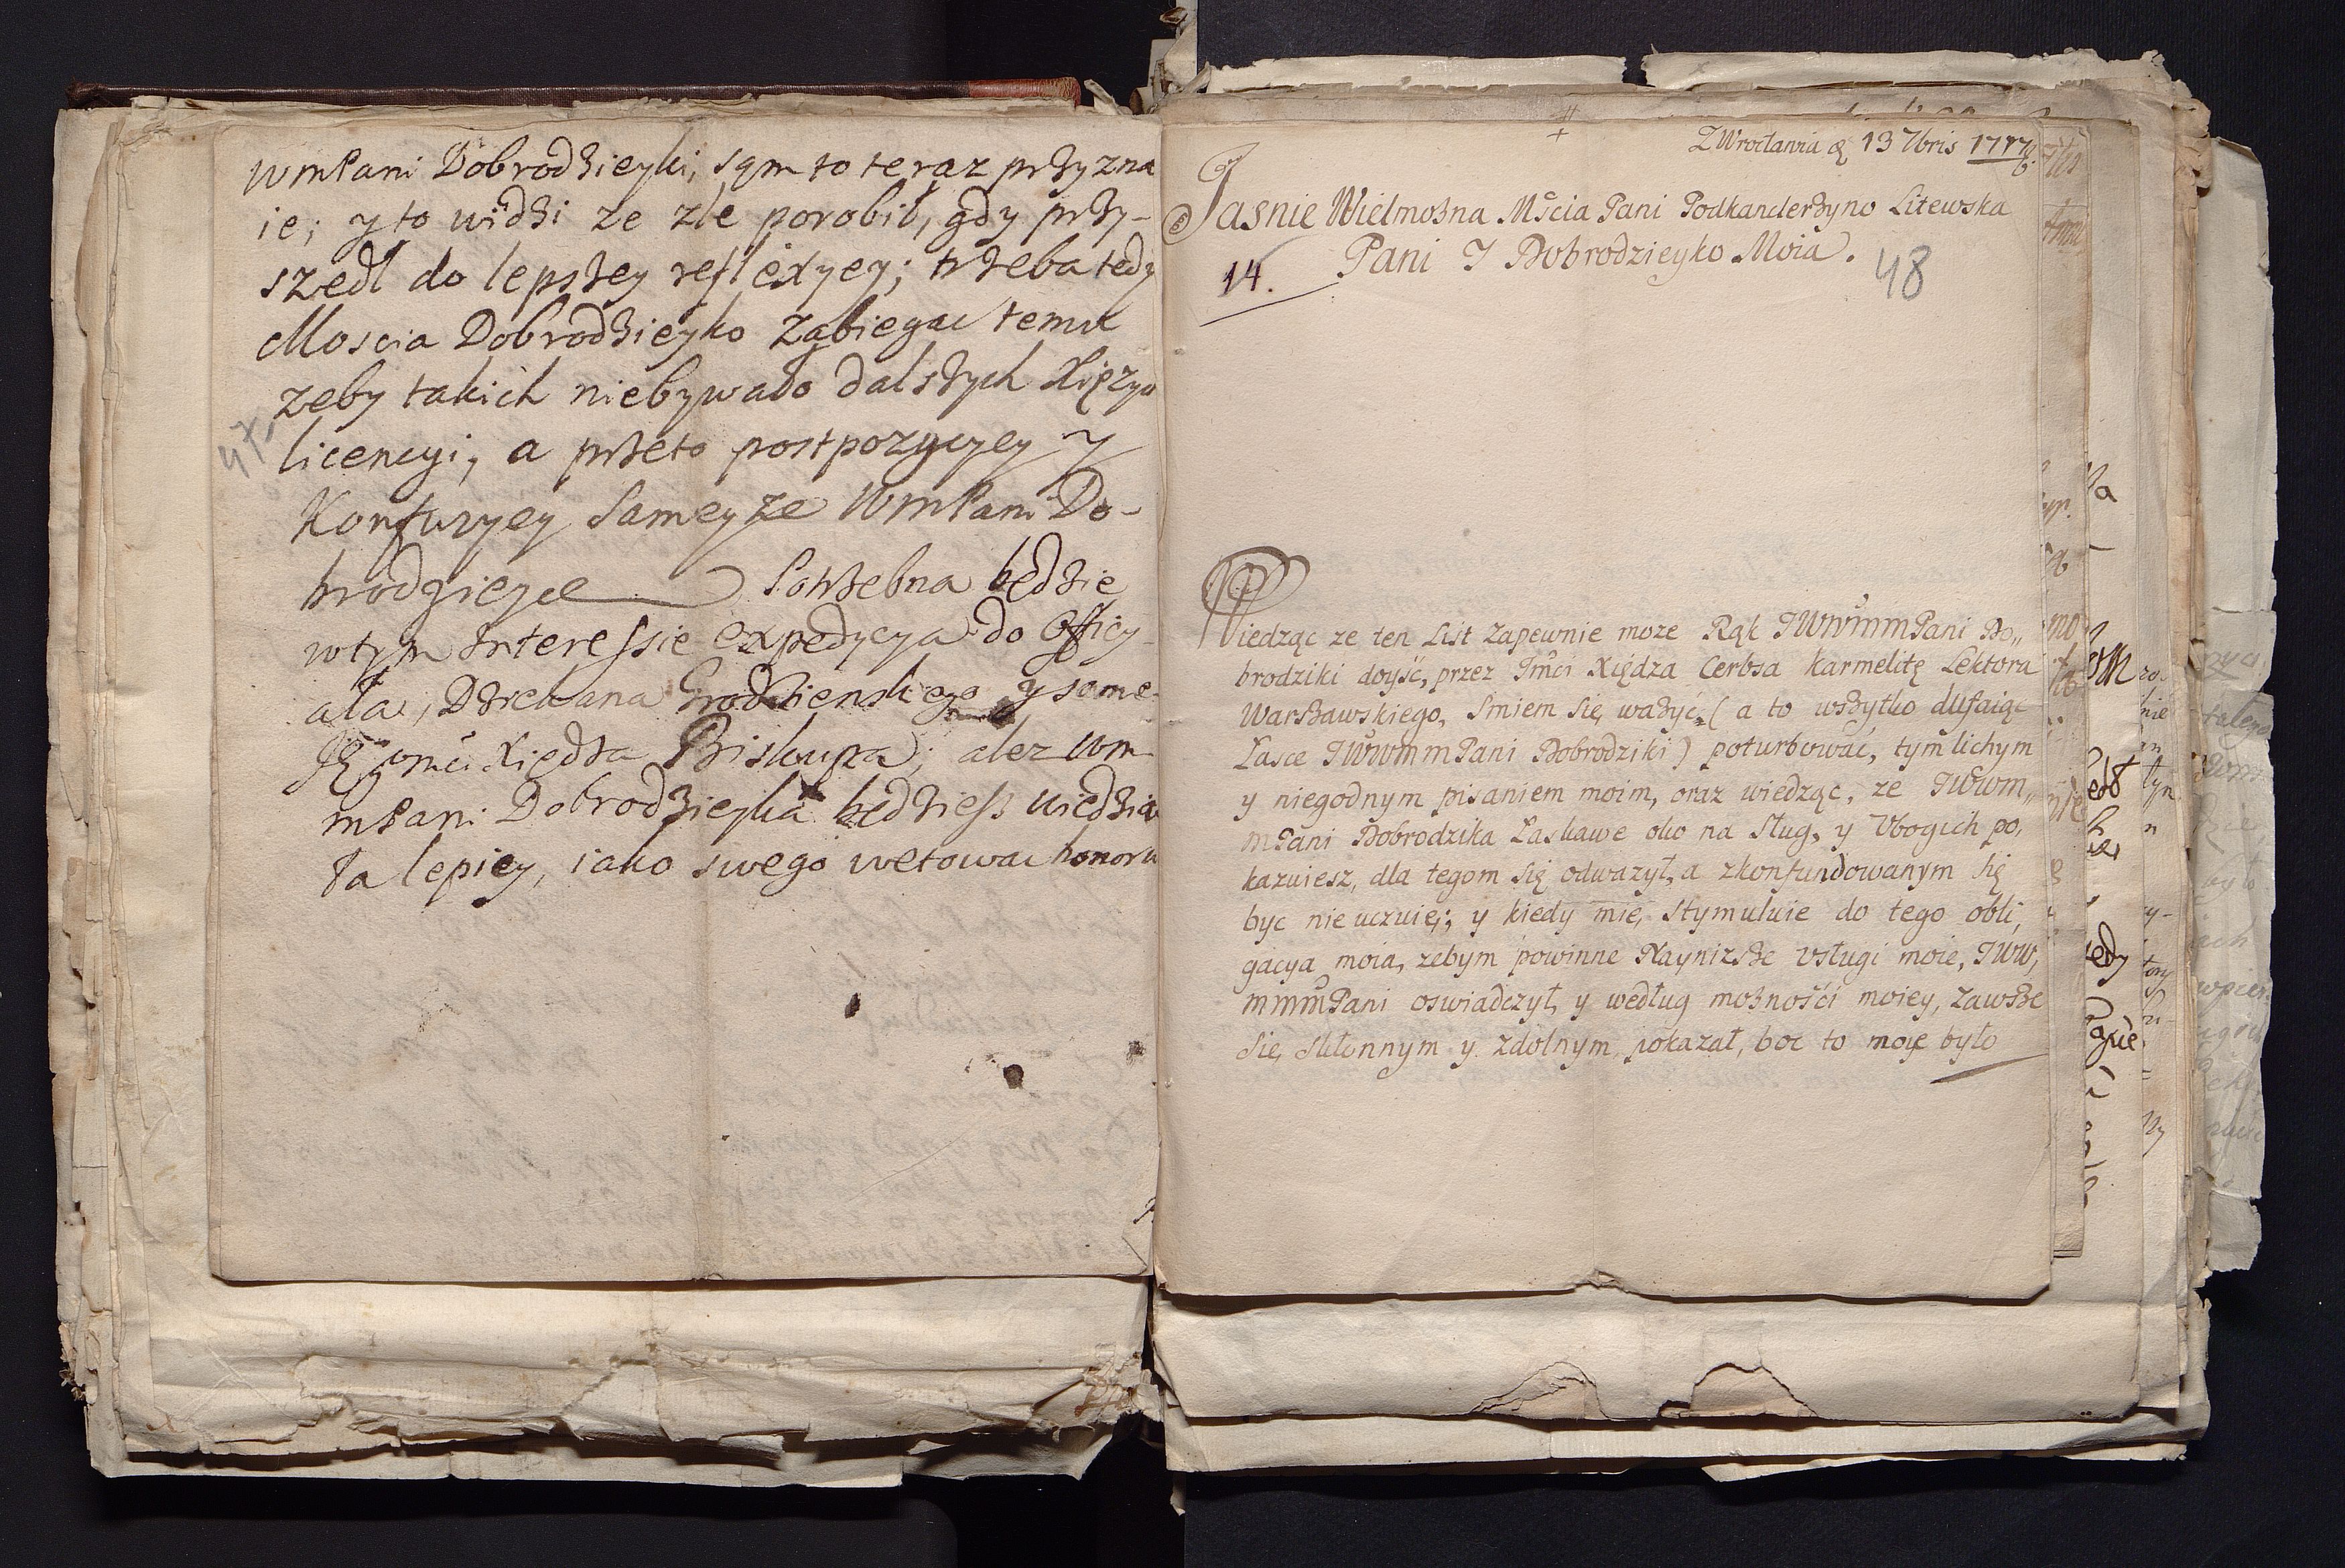 WmPani Dobrodzieyki, sąm to teraz przyzna
ie; y to widzi ze zle porobił, gdy przy-
szedł do lepszey reflexyey; trzeba tedy
Moscia Dobrodzieyko zabiegac temu
zeby takich niebywało dalszych Xięzyɔ
47.
licencyi, a przeto postpozycyey y
Konfuzyey Sameyze WmPani Do-
brodzieyce Potrzebna będzie
wtym Interessie expedycya do Officy-
ała, Dziekana Grodzienskiego y same-
Jmci Xiędza Biskupa; alez Wm
mPani Dobrodzieyka będziesz wiedzia
ła lepiey, iako swego wetowac honoru
Z Wrocławia d 13 7bris
Jasnie Wielmozna Mścia Pani Podkanclerzyno Litewska
Pani J Dobrodzieyko Moia.
14.
48
Wiedząc ze ten List zapewnie moze Rąk JWWmmPani Do,,
brodziki doyść, przez Jmći Xiędza Cerbsa Karmelitę Lektora
Warszawskiego, Smiem Się wazyć, (a to wszytko dufaiąc
Łasce JWWmmPani Dobrodziki) poturbować, tym lichym
y niegodnym pisaniem moim, oraz wiedząc, ze JWWm,,
mPani Dobrodzika Łaskawe oko na Sług, y Vbogich po,
kazuiesz, dla tegom Się odwazył, a zkonfundowanym Się
byc nie uczuię; y kiedy mię stymuluie do tego obli,
gacya moia, zebym powinne Naynizsze Vsługi moie, JWW,
mmmPani oswiadczył, y według mozności moiey, zawsze
Się skłonnym y zdolnym pokazał, boc to moie było